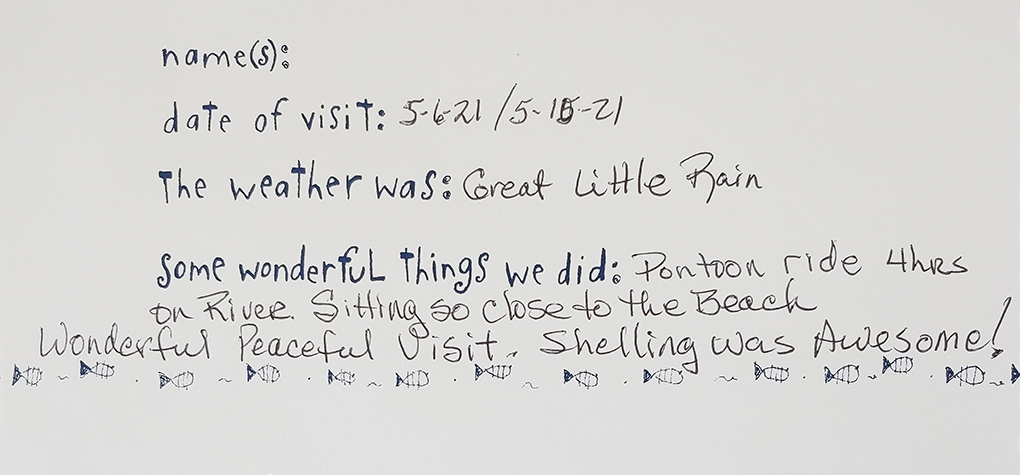 name(s):
date of visit: 5-6-21 / 5-15-21
The weather was: Great Little Rain
Some wonderful things we did: Pontoon ride 4hrs
on River. Sitting so close to the Beach
Wonderful Peaceful Visit. Shelling was Awesome!